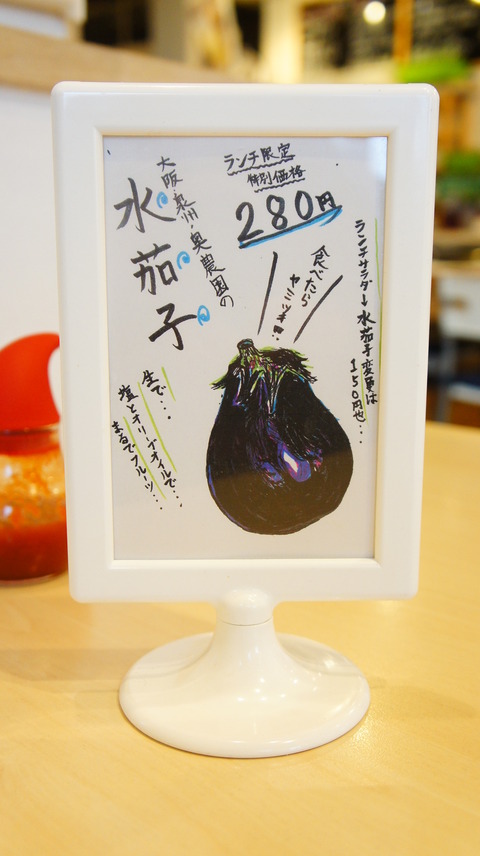 ランチ限定
特別価格
280円
大阪・泉州・奥農園の
水茄子
ランチサラダ→水茄子変更は
150円也…
食べたら
ヤミツキ!!
生で…
塩とオリーブオイルで…
まるでフルーツ…